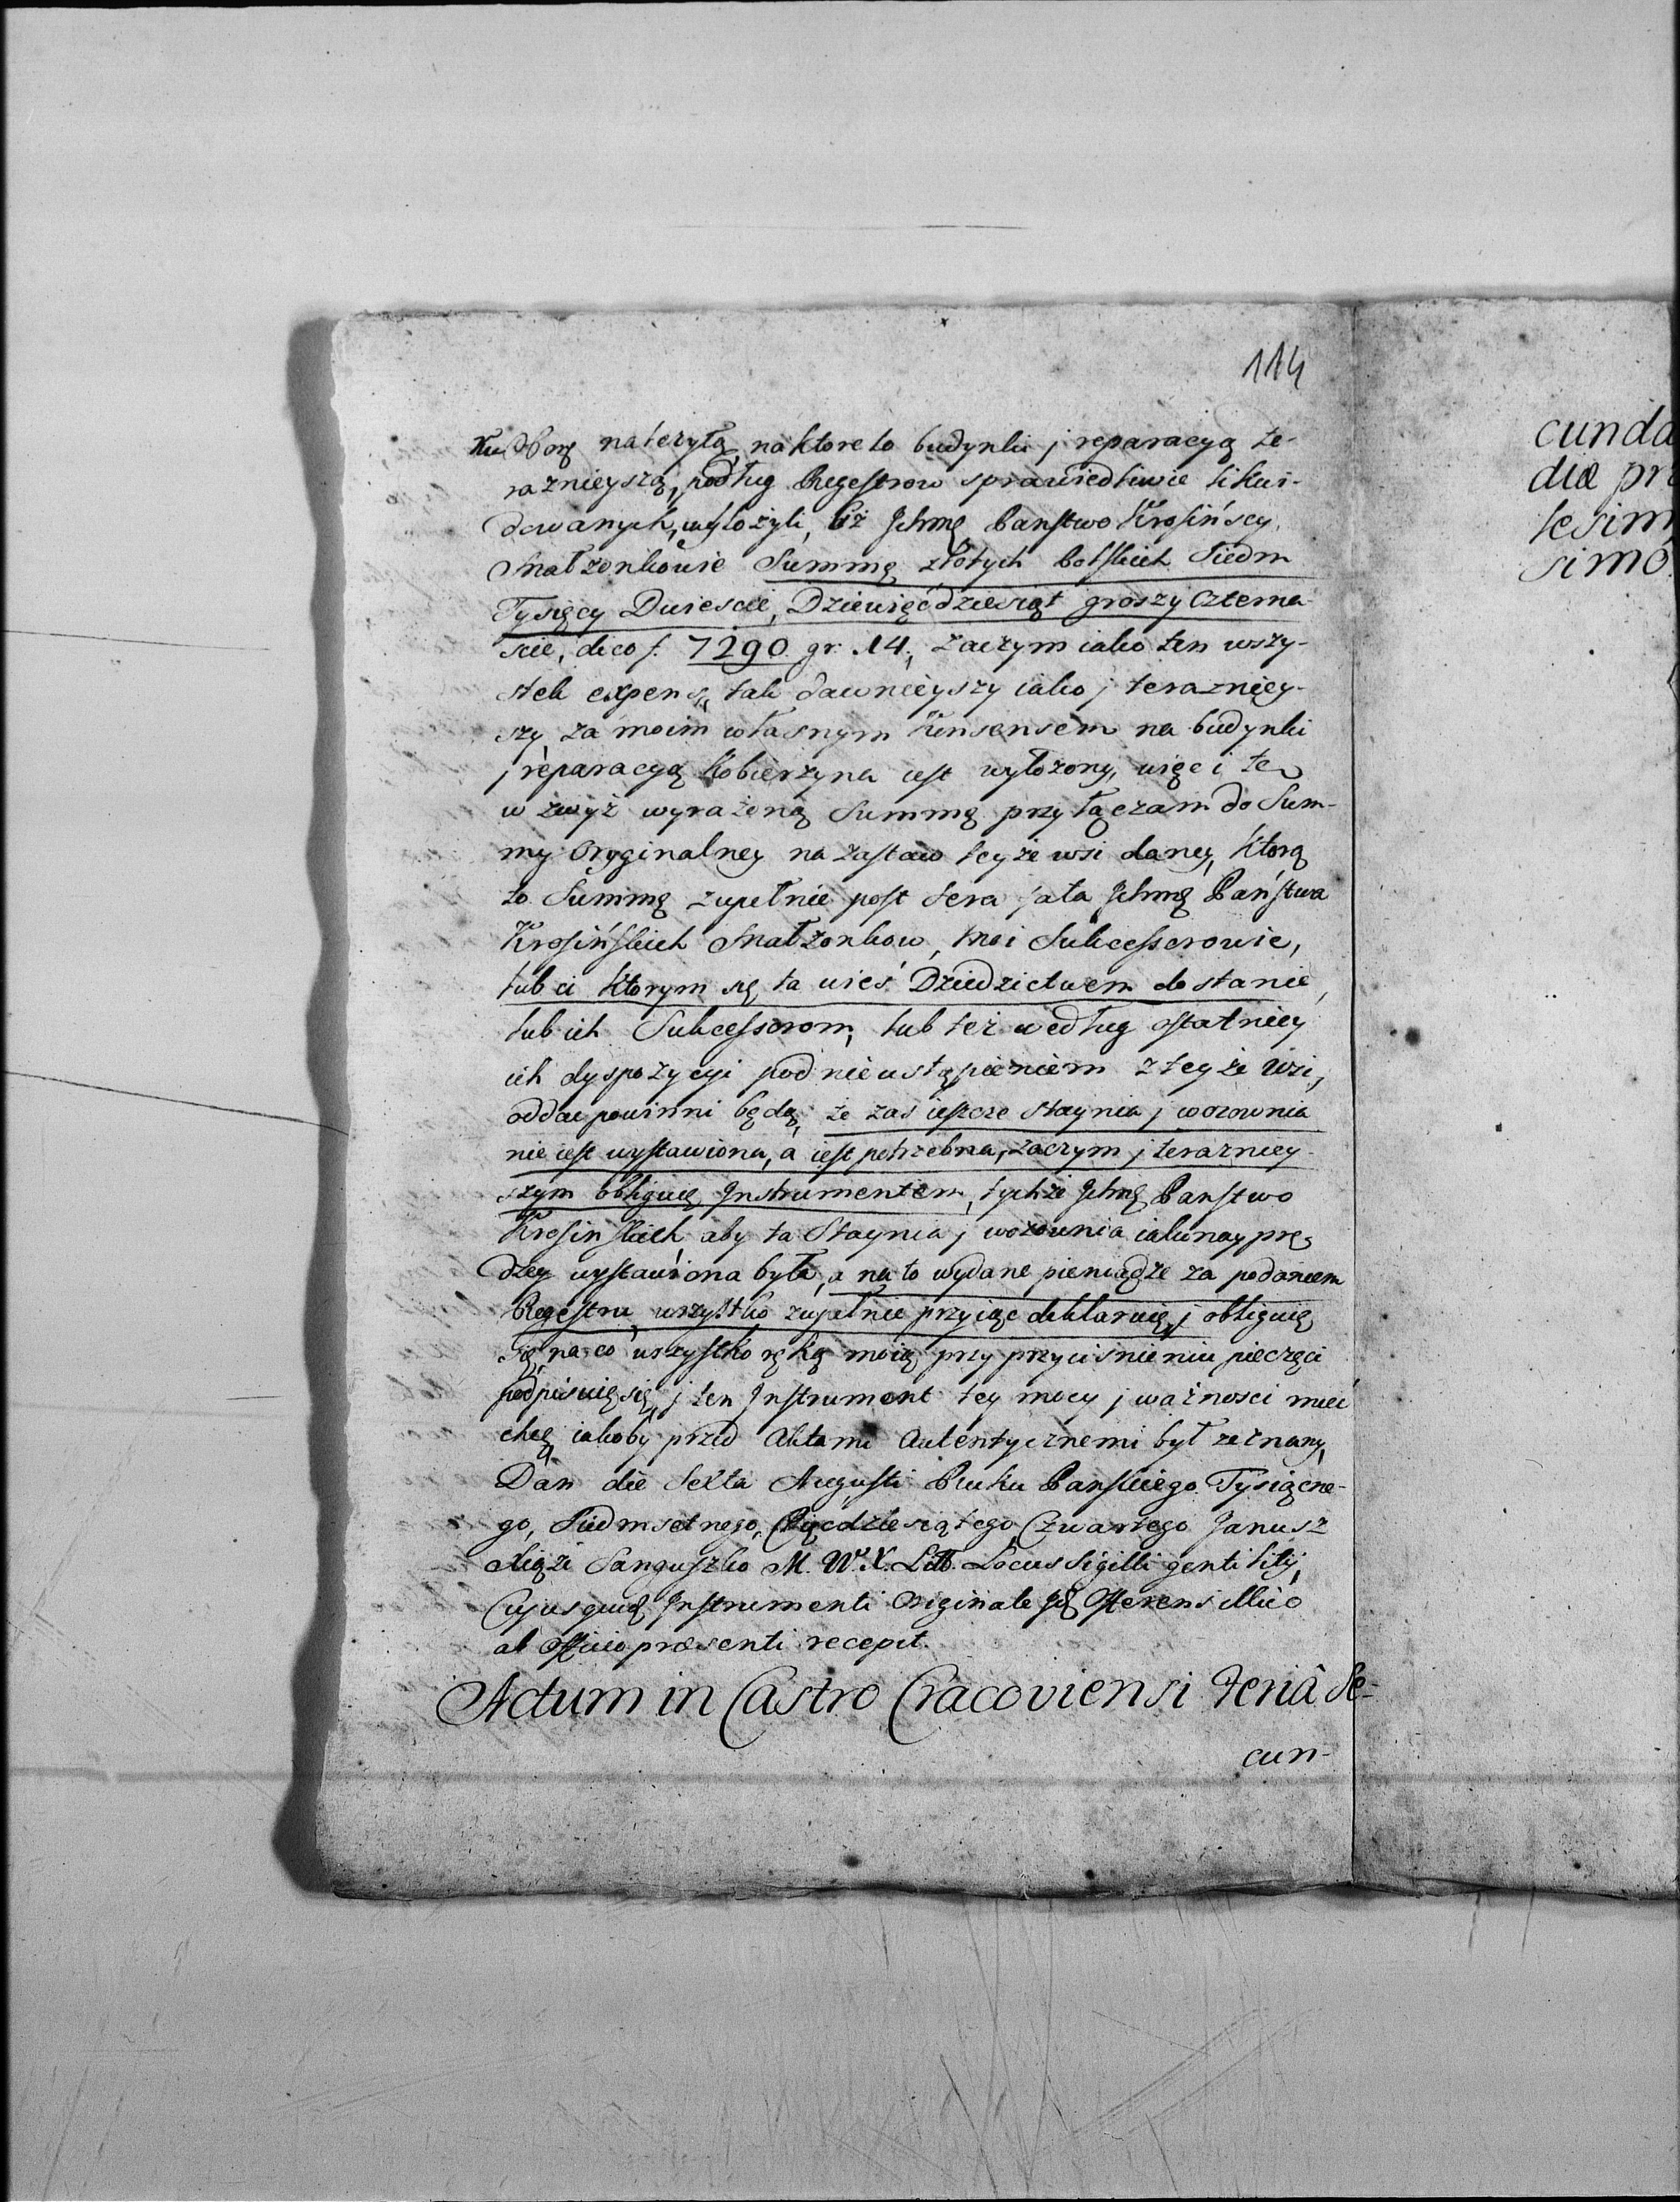 114
należytą, na ktore to budynki j reparacyą te-
raznieyszą, podług Regestrow sprawiedliwie likwi-
dowanych, wyłożyli, Ciż Jchmę Państwo Krosińscy
Małżonkowie Summę złotych Polskich Siedm
Tysięcy Dwieście, Dziewięćdziesiąt groszy Czterna-
ście, dico f. 7290. gr. 14, zaczym iako ten wszy-
stek expens, tak dawnieyszy iako j terazniey-
szy, za moim własnym Konsensem na budynki
j reparacyą Kobierzyna iest wyłożony, więc i tę
w zwyż wyrażoną Summę przyłączam do Sum-
my Oryginalney na zastaw teyże wsi daney, Ktorą
to Summę zupełnie post sera fata Jchmę Państwa
Krosińskich Małżonkow, moi Sukcessorowie,
lub ci Ktorym się ta wieś Dziedzictwem dostanie,
lub ich Sukcessorom, lub też według ostatniey
ich dyspozycyi pod nieustąpieniem z teyże Wsi,
oddać powinni będą, że zas ieszcze staynia j wozownia
nie iest wystawiona, a iest potrzebna, zaczym j terazniey-
szym obliguię Jnstrumentem, tychże Jchmę Państwo
Krosińskich, aby ta Staynia j wozownia iaknaypręs
dzey wystawiona była, a na to wydane pieniądze za podaniem
Regestru wszystko zupełnie przyiąc deklaruię, j obliguię
się, na co wszystko ręką moią przy przyciśnieniu pieczęci
podpisuię się, j ten Jnstrument tey mocy j ważnosci mieć
chcę iakoby przed Aktami Autentycznemi był zeznany,
Dan die Sexta Augusti Roku Panskiego Tysiącne-
go, Siedmsetnego, Pięcdziesiątego Czwartego Janusz
Xiąże Sanguszko M. W. X. Litt. Locus Sigilli gentilitij,
Cujusquid Jnstrumenti Originale Jdę Offerens illico
ab Officio præsenti recepit.
Actum in Castro Cracoviensi Feriâ Se-
cun-
cunda
die pr
simo